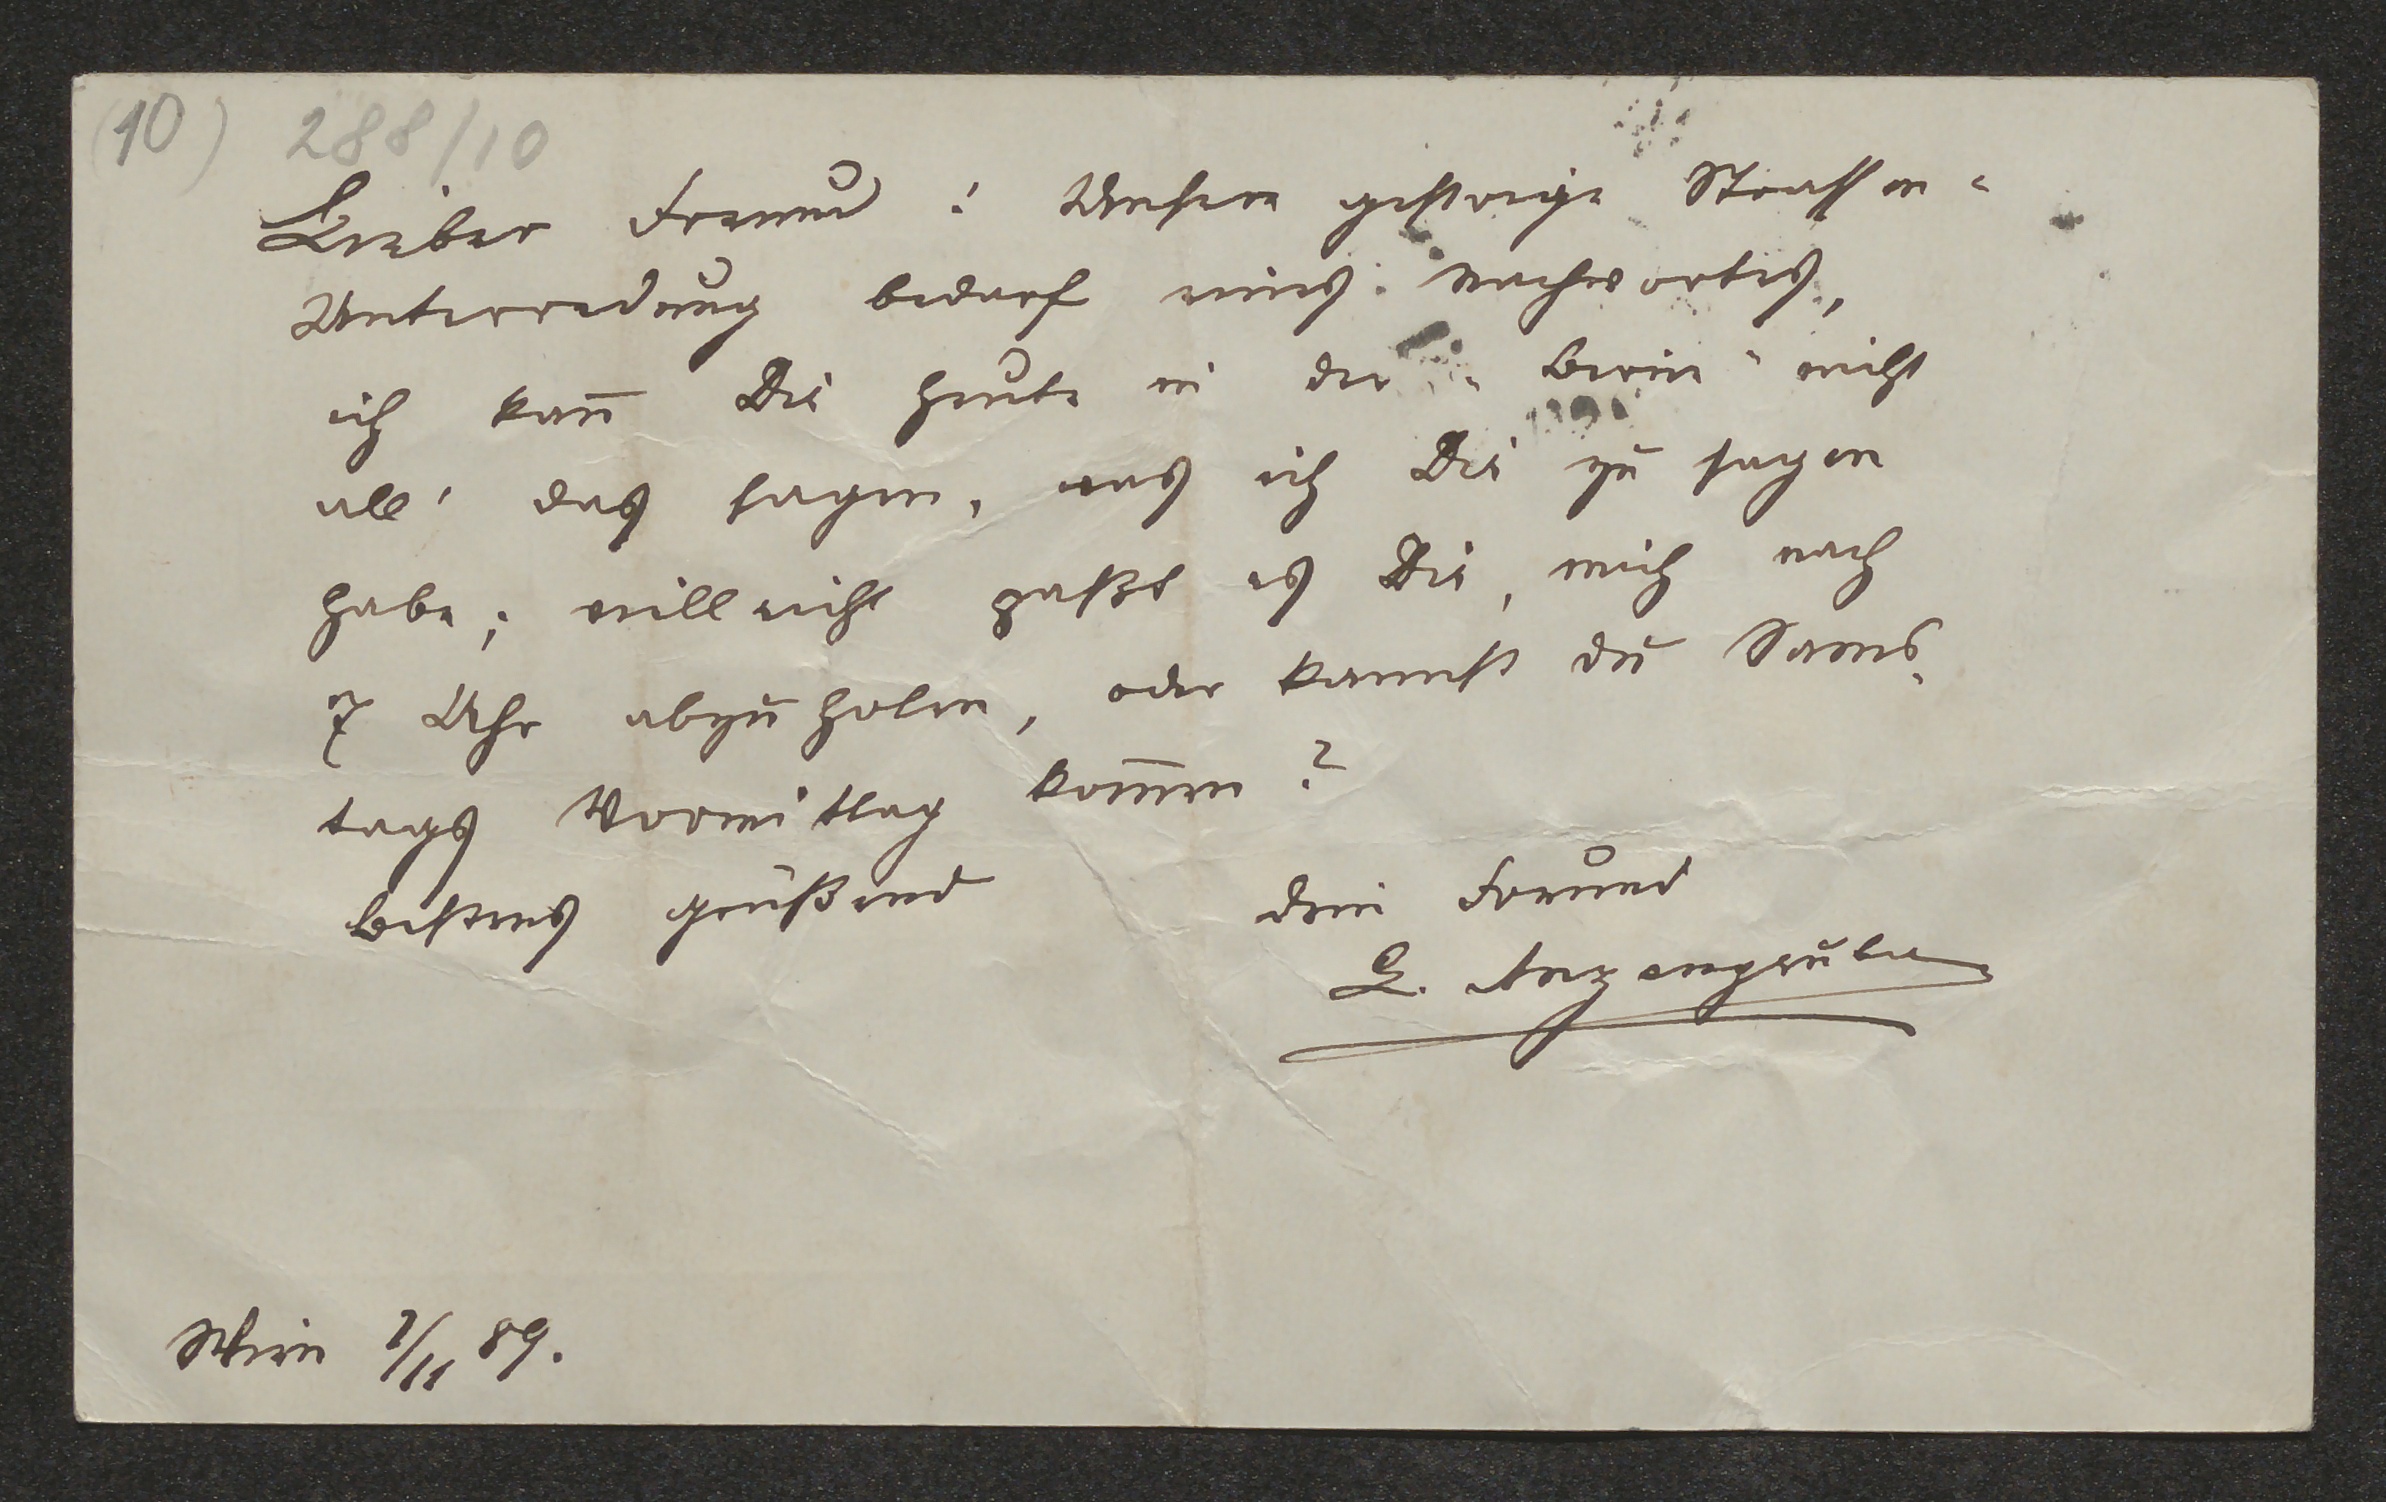 (10) 288/10
Lieber Freund! Unsere gestrige Strassen-
Unterredung bedarf eines Nachwortes,
ich kan̅ Dir heute in der „Birne“ nicht
all' das sagen, was ich Dir zu sagen
habe; vielleicht paßt es Dir, mich nach
7 Uhr abzuholen, oder kannst du Sams-
tags Vormittag kom̅en?
Bestens grüßend dein Freund
L. Anzengruber
Wien /11 89.